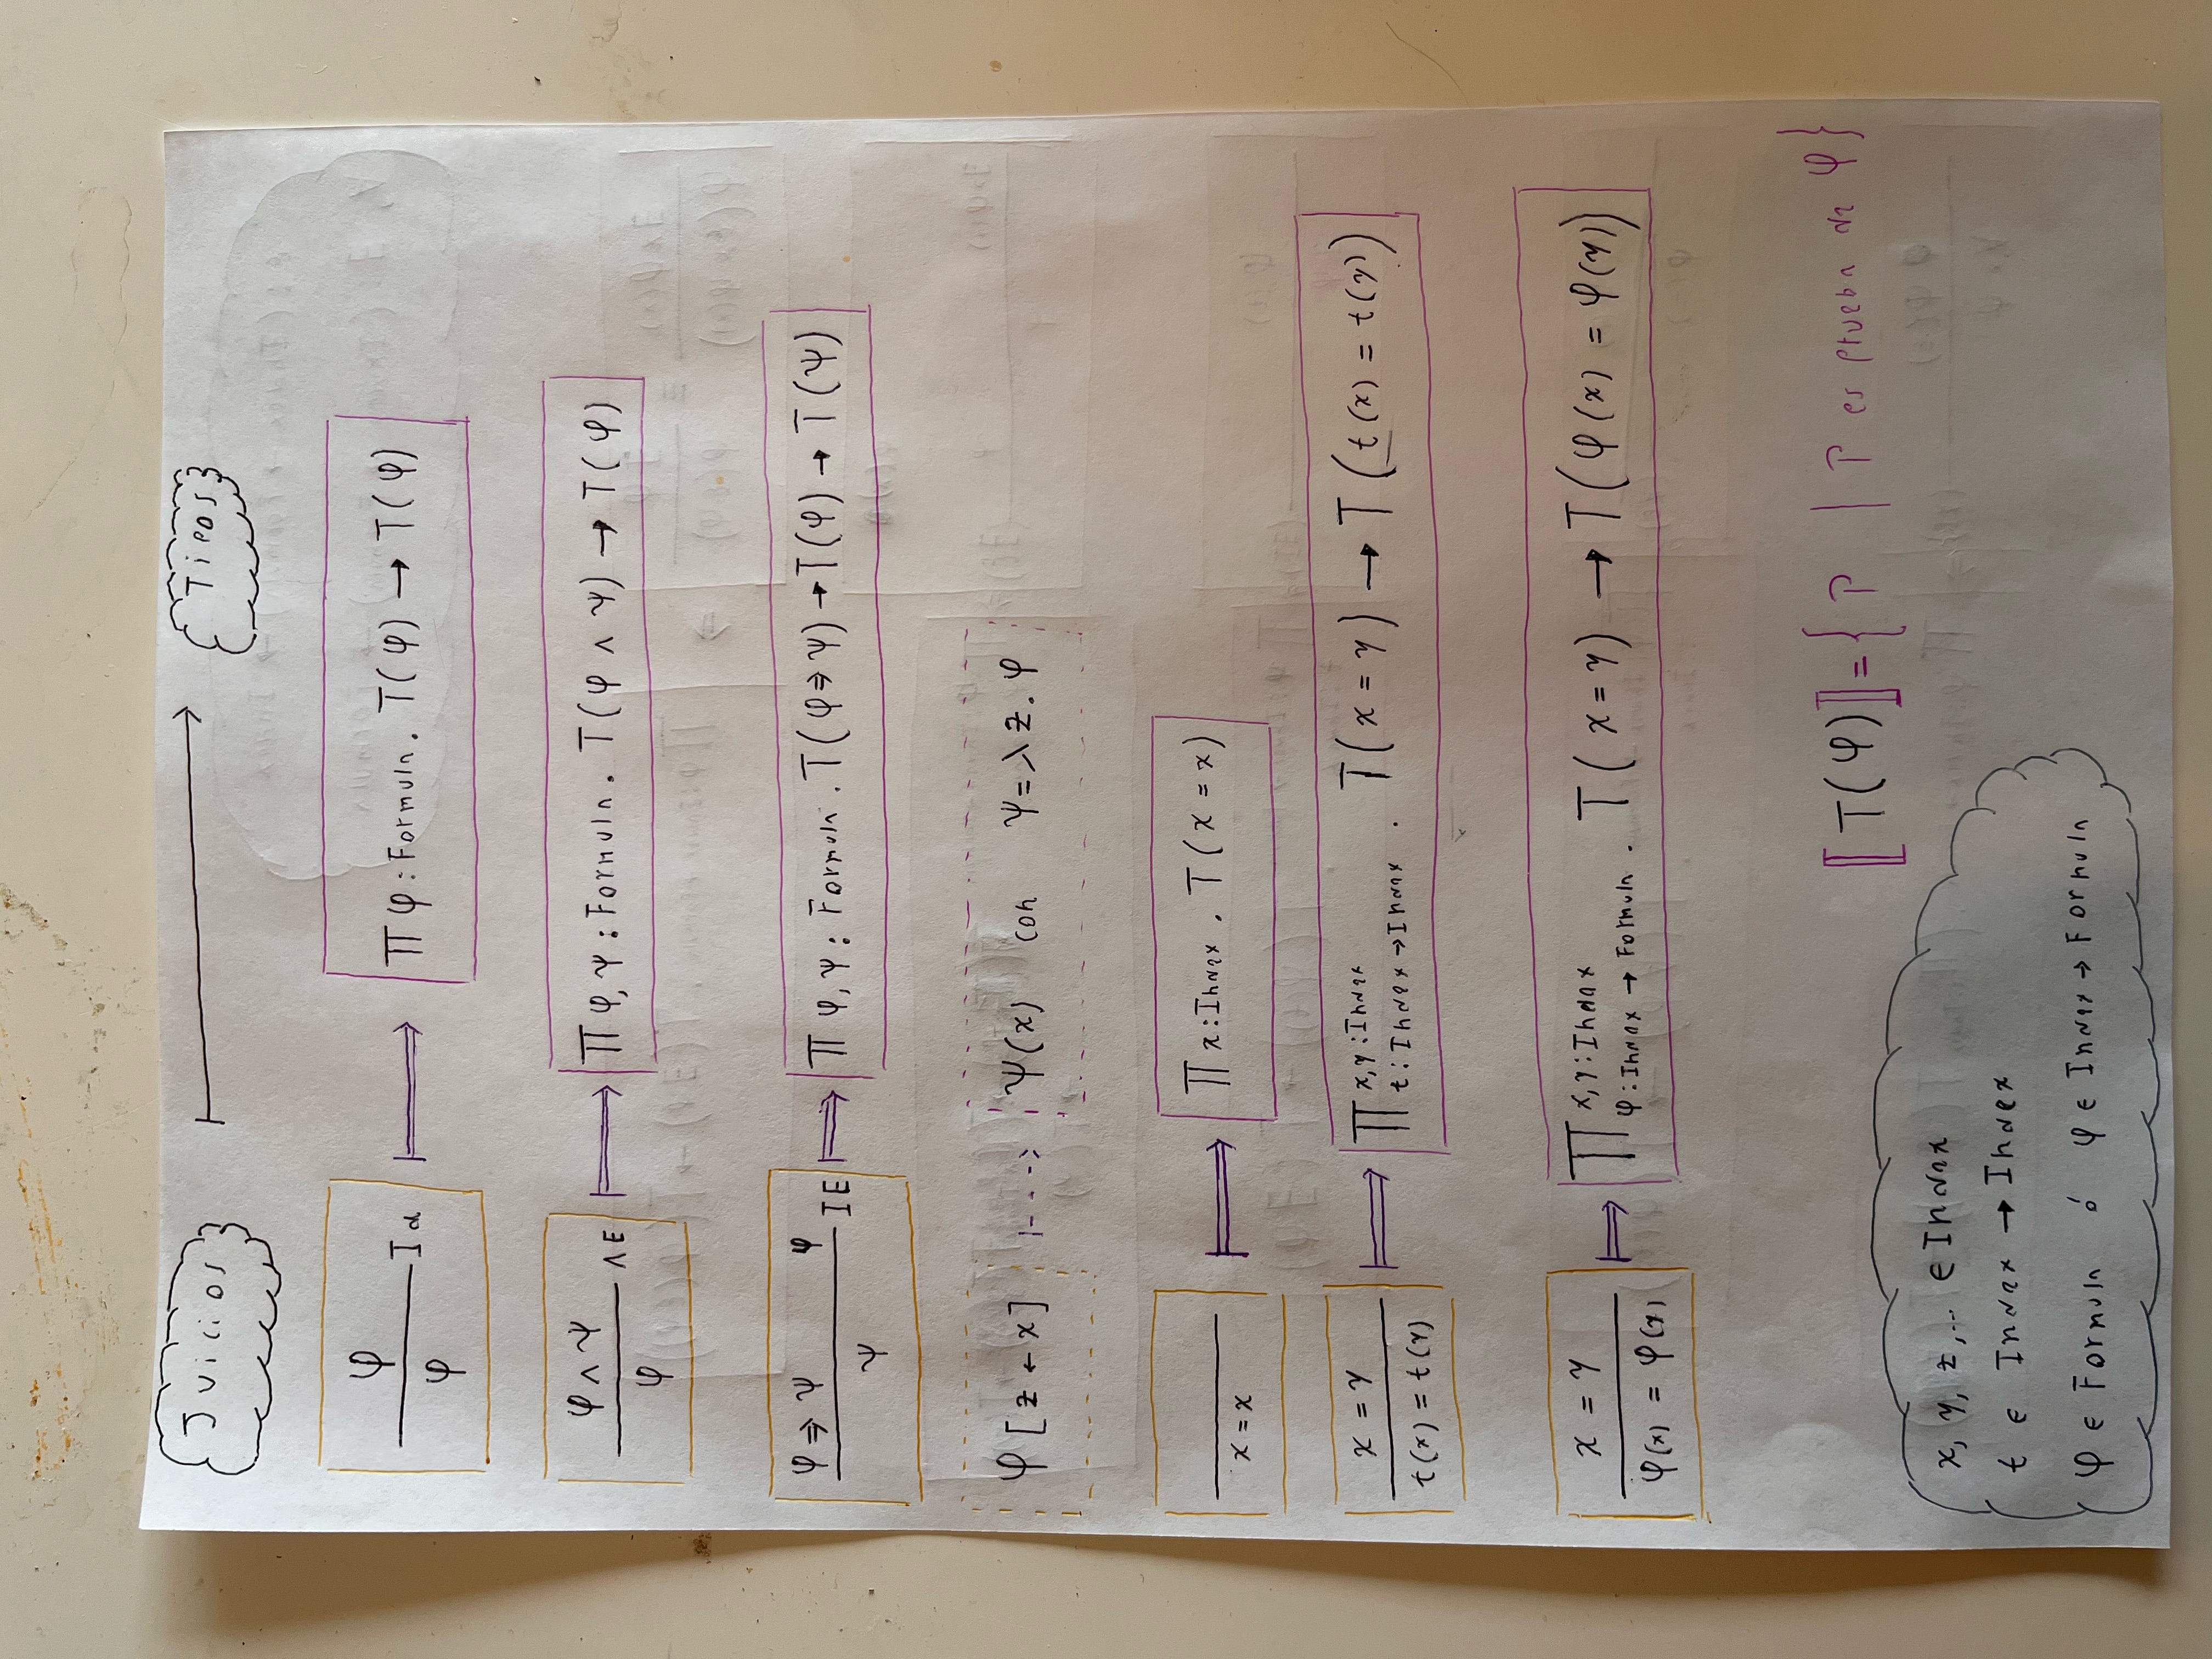 Juicios ⟼ Tipos
φ
φ Id ⟼ Π φ : Formula . T(φ) → T(φ)
φ ∧ ψ
φ ∧E ⟼ Π φ, ψ : Formula . T(φ ∧ ψ) → T(φ)
φ ⇒ ψ φ
ψ IE ⟼ Π φ, ψ : Formula . T(φ ⇒ ψ) → T(φ) → T(ψ)
φ [z ← x] ⇢ ψ(x) con ψ = λ z. φ
x = x ⟼ Π x : Index . T(x = x)
x = y
t(x) = t(y) ⟼ Π x, y : Index
t : Index → Index . T(x = y) → T(t(x) = t(y))
x = y
φ(x) = φ(y) ⟼ Π x, y : Index
φ : Index → Formula . T(x = y) → T(φ(x) = φ(y))
⟦T(φ)⟧ = { P | P es prueba de φ }
x, y, z, ... ∈ Index
t ∈ Index → Index
φ ∈ Formula ó φ ∈ Index → Formula